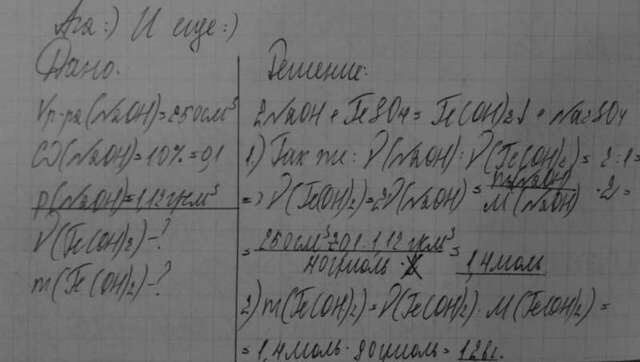 Ага:) И еще:)
Дано:
Vр-ра(NaOH)=250см³
ω(NaOH)=10%=0,1
ρ(NaOH)=1,12г/см³
ν(Fe(OH)₂)-?
m(Fe(OH)₂)-?
Решение:
2NaOH + FeSO₄ = Fe(OH)₂↓ + Na₂SO₄
1) Так же: ν(NaOH):ν(Fe(OH)₂)=2:1=
=> ν(Fe(OH)₂)=2ν(NaOH)= m(NaOH)/M(NaOH) ·2=
= 250см³·0,1·1,12г/см³/40г/моль = 1,4моль
2) m(Fe(OH)₂)=ν(Fe(OH)₂)·M(Fe(OH)₂)=
=1,4моль·90г/моль=126г.